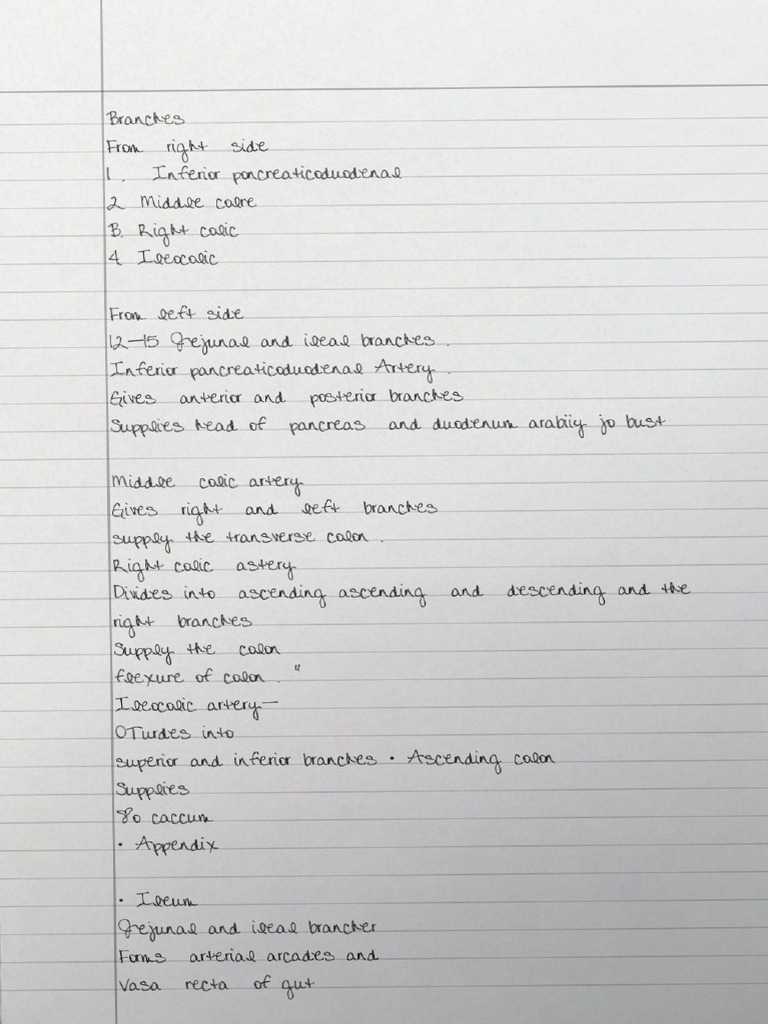 Branches
From right side
1. Inferior poncreaticoduodenal
2 Middle colre
B. Right colic
4 Ileocolic
From left side
12-15 Jejunal and ileal branches.
Inferior pancreaticoduodenal Artery.
Gives anterior and posterior branches
Supplies head of pancreas and duodenum arabiiy jo bust
Middle colic artery
Gives right and left branches
supply the transverse colon.
Right colic astery
Divides into ascending ascending and descending and the
right branches
Supply the colon
flexure of colon. "
Ileocolic artery—
OTurdes into
superior and inferior branches • Ascending colon
Supplies
80 caccum
• Appendix
• Ileum
Jejunal and ileal brancher
Forms arterial arcades and
Vasa recta of gut